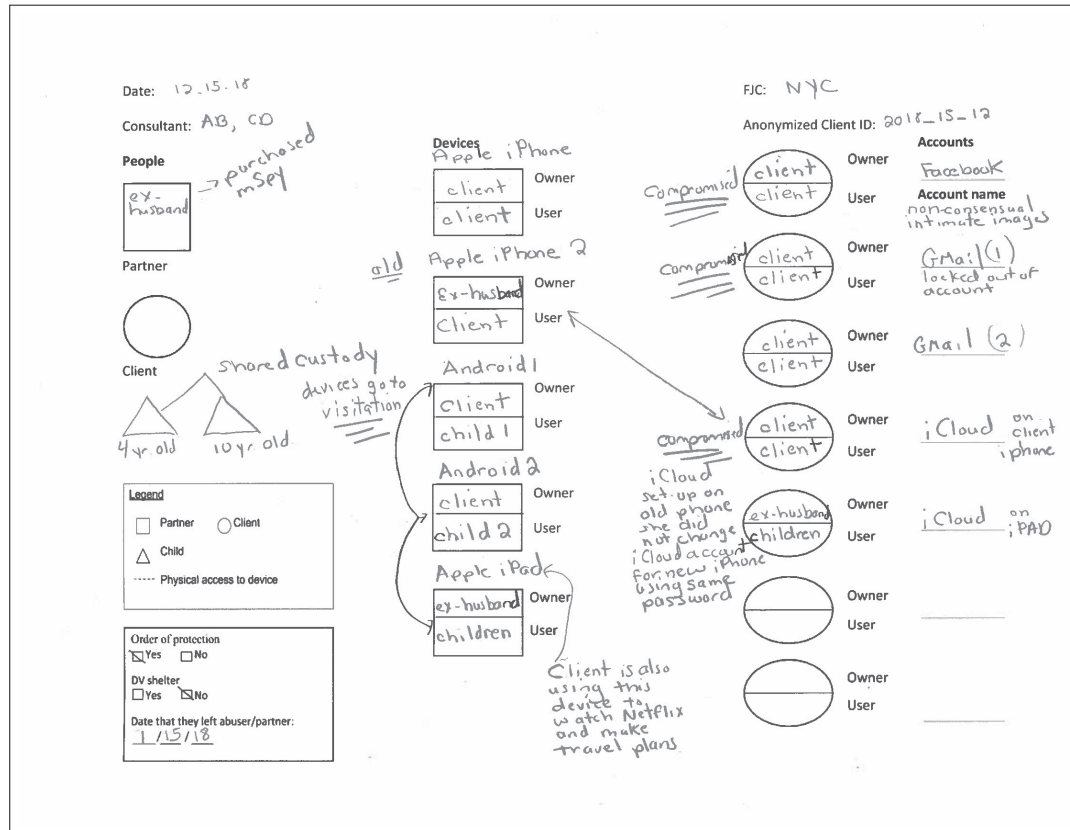 Date: 12.15.18
Consultant: AB, CD
People
ex-
husband
→ purchased
mSpy
Partner
Client
shared custody
4 yr. old
10 yr. old
devices go to
visitation
Legend
Partner
Client
Child
Physical access to device
Order of protection
Yes No
DV shelter
Yes No
Date that they left abuser/partner:
1/15/18
Devices
Apple iPhone
client Owner
client User
old Apple iPhone 2
Ex-husband Owner
Client User
Android 1
Client Owner
child 1 User
Android 2
client Owner
child 2 User
Apple iPad
ex-husband Owner
children User
Client is also
using this
device to
watch Netflix
and make
travel plans
FJC: NYC
Anonymized Client ID: 2018_15_12
Accounts
Compromised
client Owner
client User
Facebook
Account name
non-consensual
intimate images
Compromised
client Owner
client User
GMail (1)
locked out of
account
client Owner
client User
GMail (2)
compromised
client Owner
client User
iCloud on
client
iphone
iCloud
set-up on
old phone
she did
not change
iCloud account
for new iPhone
using same
password
ex-husband Owner
children User
iCloud on
iPAD
Owner
User
Owner
User